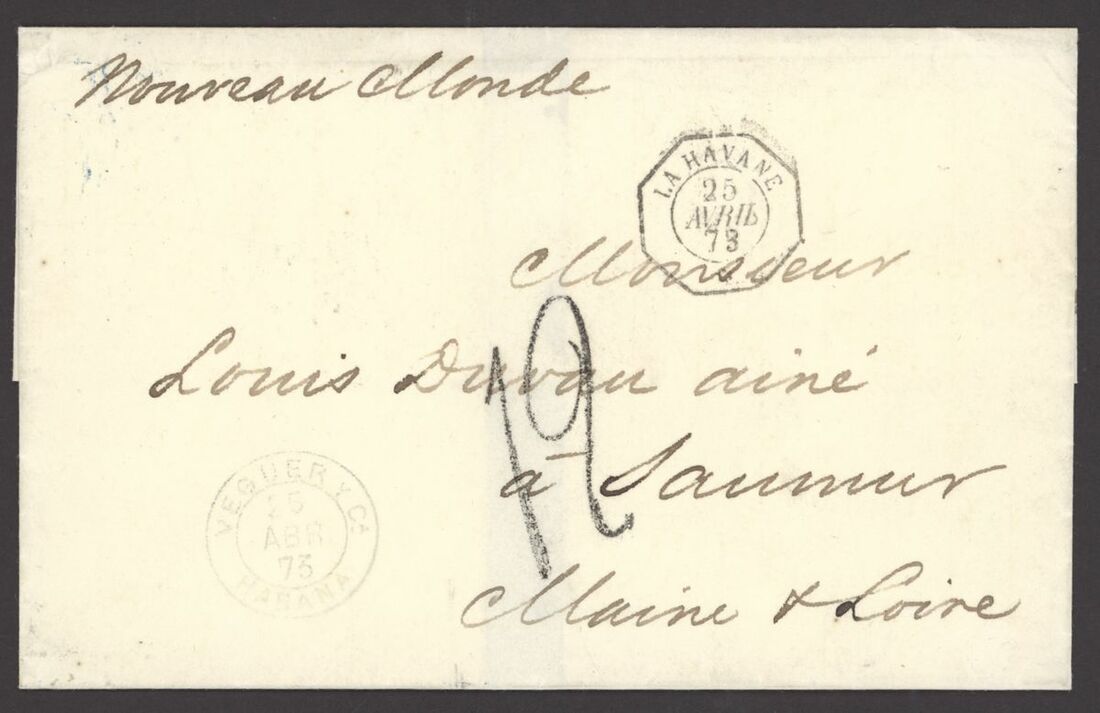 Nouveau Monde
LA HAVANE
25
AVRIL
73
Monsieur
Louis Duvau ainé
12
à Saumur
VEGUER Y Ca.
25
ABR
73
HABANA
Maine & Loire